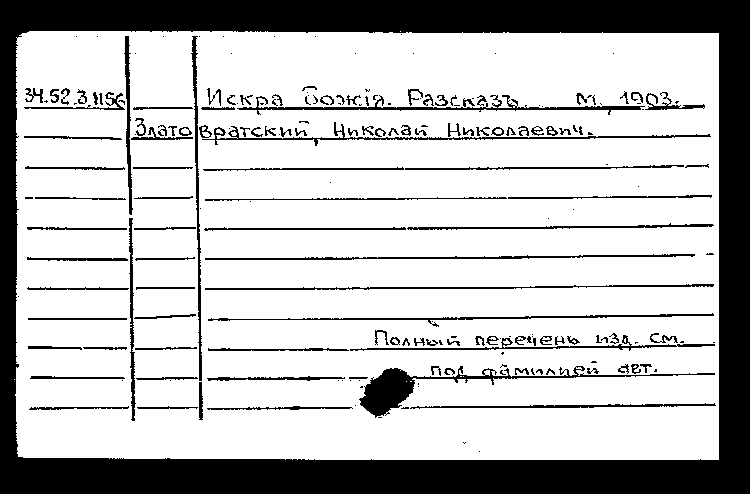 34.52.3.1156 Искра Божія. Разсказъ. М. 1903.
Златовратский, Николай Николаевич.
Полный перечень изд. см.
под фамилией авт.